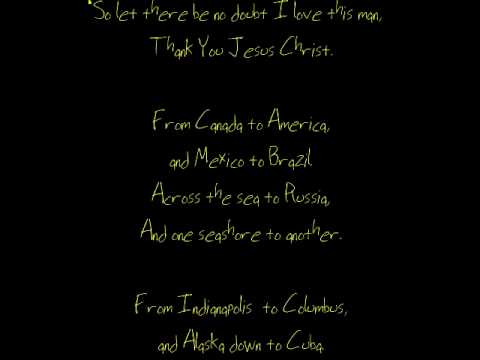 "So let there be no doubt I love this man,
Thank You Jesus Christ.
From Canada to America,
and Mexico to Brazil
Across the sea to Russia,
And one seashore to another.
From Indianapolis to Columbus,
and Alaska down to Cuba.